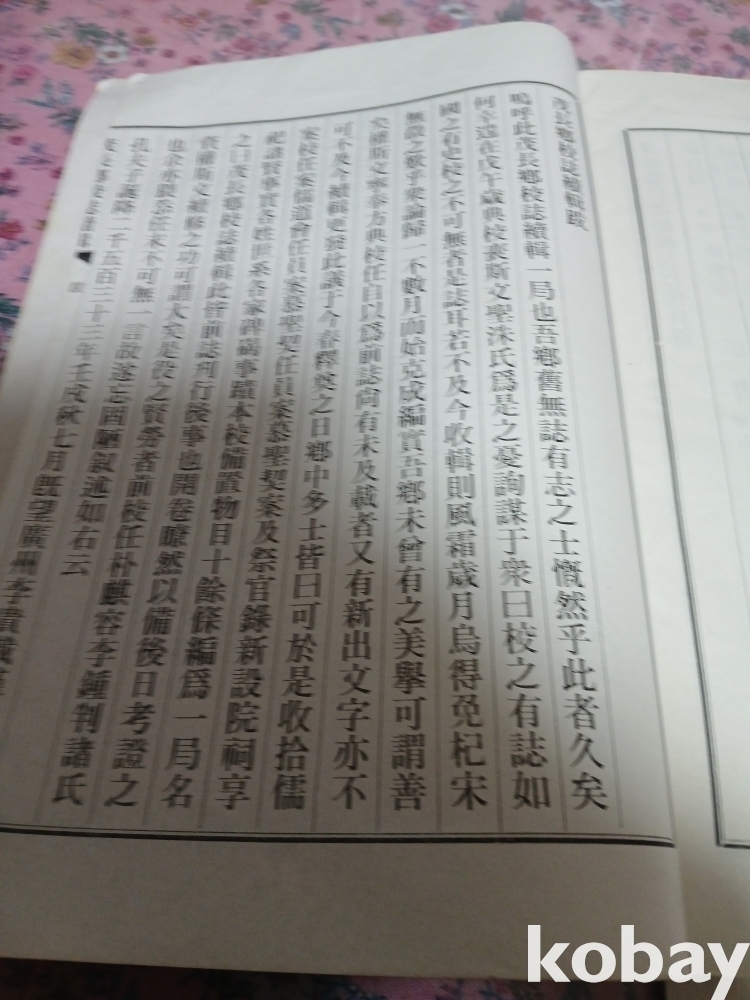 茂長鄉校誌續輯跋
嗚呼此茂長鄉校誌續輯一局也吾鄉舊無誌有志之士慨然乎此者久矣
何幸遠在戊午歲典校裵斯文聖洙氏爲是之憂詢謀于衆曰校之有誌如
國之有史校之不可無者是誌耳若不及今收輯則風霜歲月烏得免杞宋
無徵之歎乎衆論歸一不數月而始克成編實吾鄉未曾有之美擧可謂善
矣 斯文 方典校任自以爲前誌尙有未及載者又有新出文字亦不
可不及今續輯更發此議于今春釋奠之日鄉中多士皆曰可於是收拾儒
案校任案儒道會任員案慕聖契任員案慕聖契案及祭官錄新設院祠享
祀諸賢事實各姓世系各家碑碣事蹟本校備置物目十餘條編爲一局名
之曰茂長鄉校誌續輯此倂前誌刊行後事也開卷瞭然以備後日考證之
資 斯文續修之功可謂大矣是役之賢勞者前校任朴麒容李鍾判諸氏
也余亦 任末不可無一言故遂忘固陋敍述如右云
孔夫子誕降二千五百三十三年壬戌秋七月旣望廣州李
kobay